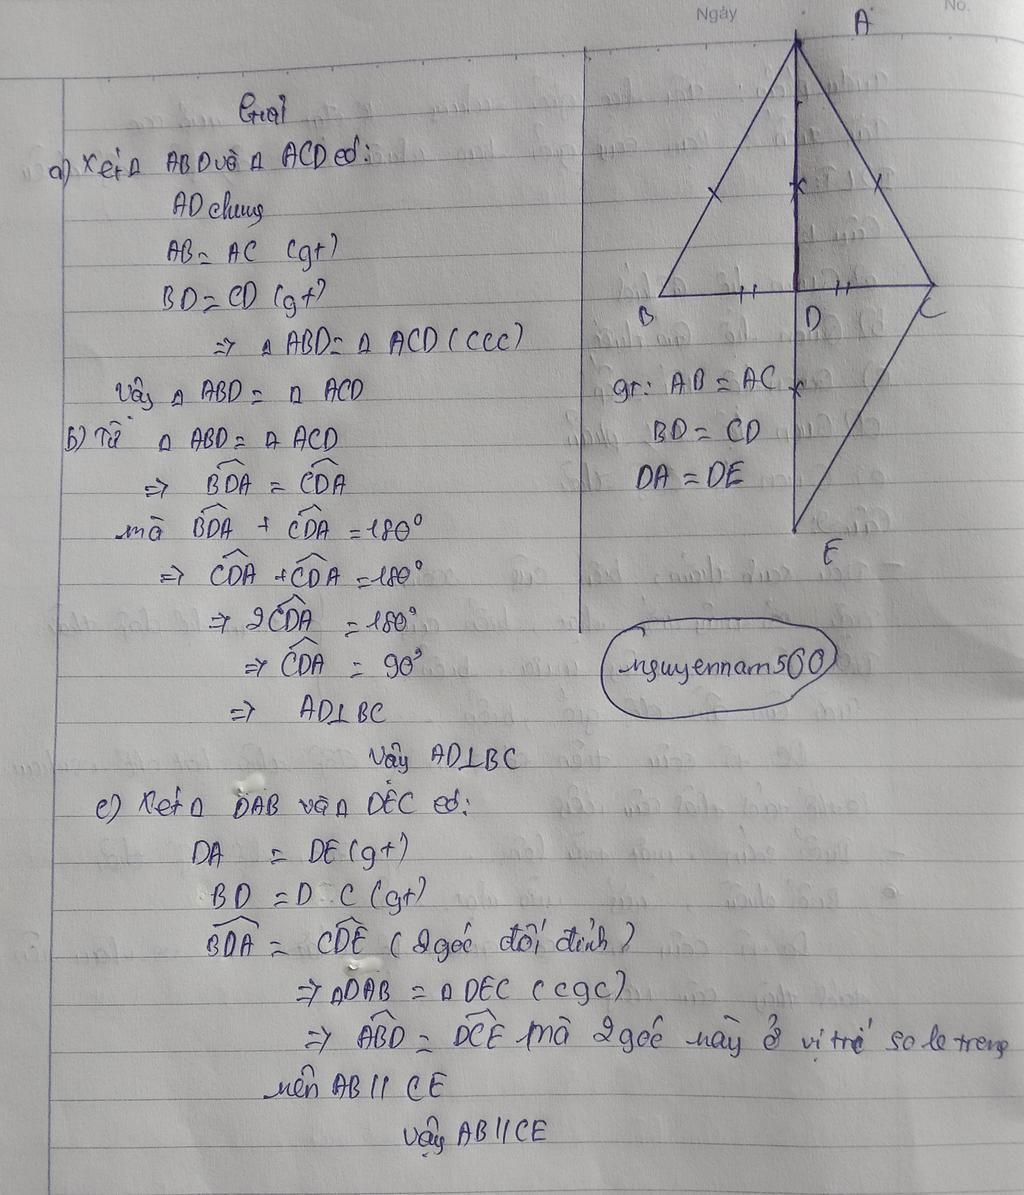 Ngày
No.
Giải
a) Xét Δ ABD và Δ ACD có:
AD chung
AB = AC (gt)
BD = CD (gt)
=> Δ ABD = Δ ACD (ccc)
Vậy Δ ABD = Δ ACD
b) Từ Δ ABD = Δ ACD
=> BDA = CDA
mà BDA + CDA = 180°
=> CDA + CDA = 180°
=> 2CDA = 180°
=> CDA = 90°
=> AD⊥BC
Vậy AD⊥BC
c) Xét Δ DAB và Δ DEC có:
DA = DE (gt)
BD = DC (gt)
BDA = CDE (2 góc đối đỉnh)
=> ΔDAB = ΔDEC (cgc)
=> ABD = DCE mà 2 góc này ở vị trí so le trong
nên AB // CE
Vậy AB // CE
A
B
D
C
gt: AB = AC
BD = CD
DA = DE
E
nguyennam500